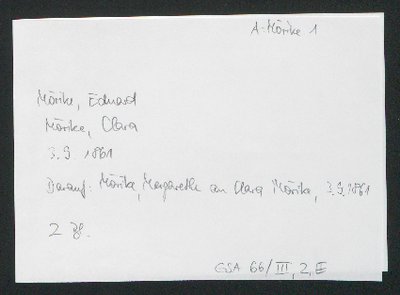 A-Mörike 1
Mörike, Eduard
Mörike, Clara
3.9.1861
Darauf: Mörike, Margarethe an Clara Mörike, 3.9.1861
2 Bl.
GSA 66/III, 2, E